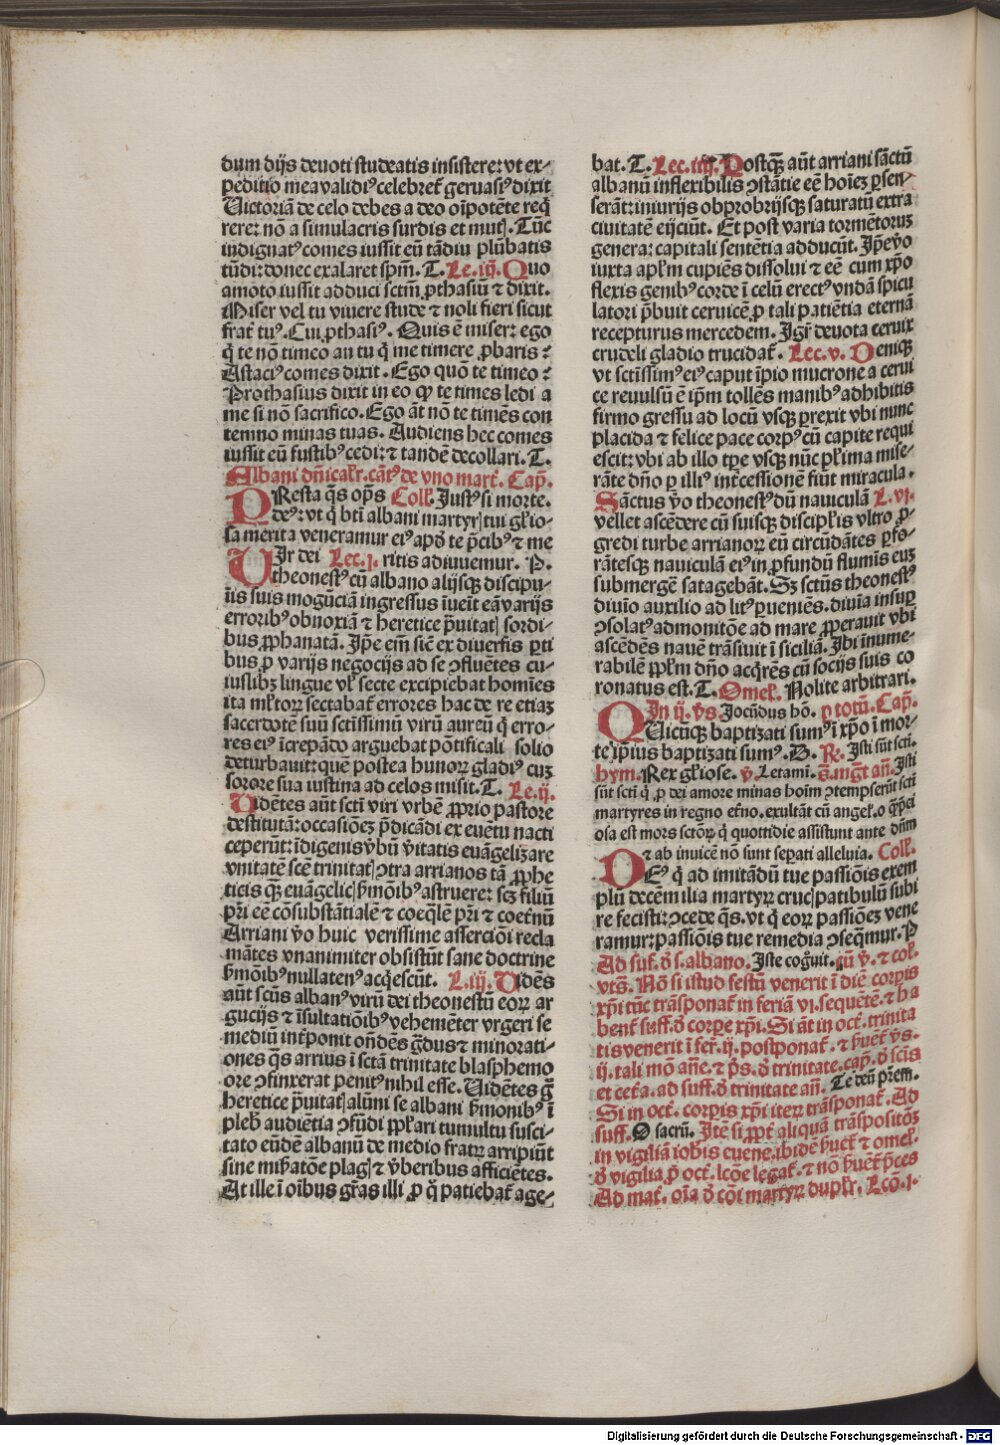 dum dijs deuoti studeatis insistere: vt ex-
peditio mea validiꝰ celebret᷑ geruasiꝰ dixit
Victoriā de celo debes a deo oīpotēte req̄
rere: nō a simulacris surdis et mutꝭ. Tūc
indignatꝰ comes iussit eū tādiu plūbatis
tūdi: donec exalaret spm̄. T. Le. iij. Quo
amoto iussit adduci sctm̄ ꝓthasiū ⁊ dixit.
Miser vel tu viuere stude ⁊ noli fieri sicut
frat᷑ tuꝰ. Cui ꝓthasiꝰ. Quis ē miser: ego
q̇ te nō timeo an tu q̇ me timere ꝓbaris ?
Astaciꝰ comes dixit. Ego quō te timeo ?
Prothasius dixit in eo ꝙ te times ledi a
me si nō sacrifico. Ego āt nō te timēs con
temno minas tuas. Audiens hec comes
iussit eū fustibꝰ cedi: ⁊ tandē decollari. T.
Albani dn̄icalr̄. cātꝰ de vno mart᷑. Cap̄.
PResta q̄s op̄s Coll̄. Iustꝰ si morte.
deꝰ: vt q̇ bt̄i albani martyrꝭ tui gl̄io-
sa merita veneramur eiꝰ apd̄ te p̄cibꝰ ⁊ me
VIr dei Lec. j. ritis adiuuemur. P.
theonestꝰ cū albano alijsqꝫ discipu-
lis suis mogūciā ingressus īueīt eā varijs
erroribꝰ obnoxiā ⁊ heretice p̄uitatꝭ sordi-
bus ꝓphanatā. Ip̄e em̄ sic̄ ex diuersis ꝑti
bus ꝑ varijs negocijs ad se ꝯfluētes cu-
iuslibꝫ lingue vl̄ secte excipiebat homīes
ita ml̄toꝝ sectabat᷑ errores hac de re etiaꝫ
sacerdotē suū sctīssimū virū aureū q̇ erro-
res eiꝰ īcrepādo arguebat pōtificali solio
deturbauit: quē postea hunoꝝ gladiꝰ cuꝫ
sorore sua iustina ad celos misit. T. Le. ij.
Vidētes aūt sctī viri vrbē ꝓprio pastore
destitutā: occasiōeꝫ p̄dicādi ex euētu nacti
ceperūt: īdigenis v̄bū v̄itatis euāgelizare
vnitatē scē trinitatꝭ ꝯtra arrianos tā ꝓphe
ticis qꝫ euāgelicꝭ ẜmōibꝰ astruere: scꝫ filiū
pr̄i eē cōsubstātialē ⁊ coeq̄lē pr̄i ⁊ coet᷑nū
Arriani v̄o huic verissime asserciōi recla
mātes vnanimiter obsistūt sane doctrine
ẜmōibꝰ nullatenꝰ acq̇escūt. L. iij. Vidēs
aūt scūs albanꝰ virū dei theonestū eoꝝ ar
gucijs ⁊ īsultatiōibꝰ vehemēter vrgeri se
mediū int᷑ponit on̄dēs g̈dus ⁊ minorati-
ones q̄s arrius ī sctā trinitate blasphemo
ore ꝯfinxerat penitꝰ nihil esse. Vidētes g̊
heretice p̄uitatꝭ alūni se albani ẜmonibꝰ ī
pleb̄ audiētia ꝯfūdi ppl̄ari tumultu susci-
tato eūdē albanū de medio fratꝝ arripiūt
sine misẜatōe plagꝭ ⁊ v̄beribus afficiētes.
At ille ī oībus gr̄as illi ꝓ q̇ patiebat᷑ age-
bat. T. Lec. iiij. Postqꝫ aūt arriani sāctū
albanū inflexibilis ꝯstātie eē hoīeꝫ ꝑsen-
serāt: iniurijs obprobrijsqꝫ saturatū extra
ciuitatē eijciūt. Et post varia tormētoruꝫ
genera: capitali sentētia adducūt. Ip̄e v̄o
iuxta apl̄m cupiēs dissolui ⁊ eē cum xp̄o
flexis genibꝰ corde ī celū erectꝰ vndā spicu
latori p̄buit ceruicē ꝓ tali patiētia eternā
recepturus mercedem. Igr̄ deuota ceruix
crudeli gladio trucidat᷑. Lec. v. Deniqꝫ
vt sctīssimꝰ eiꝰ caput īpio mucrone a cerui
ce reuulsū ē ip̄m tollēs manibꝰ adhibitis
firmo gressu ad locū vsqꝫ ꝑrexit vbi nunc
placida ⁊ felice pace corpꝰ cū capite requi
escit: vbi ab illo tp̄e vsqꝫ nūc pl̄ima mise-
rāte dn̄o ꝑ illiꝰ int᷑cessionē fiūt miracula.
Sāctus v̄o theonestꝰ dū nauiculā L. vi.
vellet ascēdere cū suisqꝫ discipl̄is vltro ꝓ-
gredi turbe arrianoꝝ eū circūdātes ꝑfo-
rātesqꝫ nauiculā eiꝰ in ꝓfundū flumīs euꝫ
submergē satagebāt. Sꝫ sctūs theonestꝰ
diuīo auxilio ad litꝰ ꝑueniēs. diuīa insuꝑ
ꝯsolatꝰ admonitōe ad mare ꝓꝑerauit vbi
ascēdēs nauē trāsiuit ī siciliā. Ibi īnume-
rabilē ppl̄m dn̄o acq̇rēs cū socijs suis co
ronatus est. T. Omel̄. Nolite arbitrari.
In ij. v̄s Iocūdus hō. ꝑ totū. Cap̄.
QUicūqꝫ baptizati sumꝰ ī xp̄o ī mor-
te ip̄ius baptizati sumꝰ. B. R̄. Isti sūt sctī.
hym. Rex gl̄iose. v̄. Letamī. s̄. mg̅t an̄. Isti
sūt sctī q̇ ꝓ dei amore minas hoīm ꝯtempserūt sctī
martyres in regno et᷑no. exultāt cū angel̄. o q̄p̄ci
osa est mors sctōꝝ q̇ quottidie assistunt ante dn̄m
⁊ ab inuicē nō sunt seꝑati alleluia. Coll̄.
DEꝰ q̇ ad imitādū tue passiōis exem
plū decēmilia martyrꝝ crucꝭ patibulū subi
re fecisti: ꝯcede q̄s. vt q̇ eoꝝ passiōeꝫ vene
ramur: passiōis tue remedia ꝯseq̄mur. P
Ad suf. d̄ s. albano. Iste cogn̄uit. cū v̄. ⁊ col̄.
vts̄. Nō si istud festū venerit ī diē corꝑis
xp̄i tūc trāsponat᷑ in feriā vi. sequētē. ⁊ ha
bent᷑ suff. d̄ corꝑe xp̄i. Si āt in oct. trinita
tis venerit ī fer̄. ij. postponat᷑. ⁊ hūet᷑ v̄s.
ij. tali mō añe. ⁊ p̄s. d̄ trinitate. cap̄. d̄ scīs
et cet᷑a. ad suff. d̄ trinitate an̄. Te deū pr̄em.
Si in oct. corꝑis xp̄i iteꝝ trāsponat᷑. Ad
suff. O sacrū. Itē si ꝓpt᷑ aliquā trāspositōꝫ
in vigiliā iohīs euene. ibidē hūet᷑ ⁊ omel̄.
d̄ vigilia ꝓ oct. lcōe legat᷑. ⁊ nō hūet᷑ p̄ces
Ad mat᷑. oīa d̄ cōi martyꝝ dupl̄r. Lcō. j.
Digitalisierung gefördert durch die Deutsche Forschungsgemeinschaft - DFG